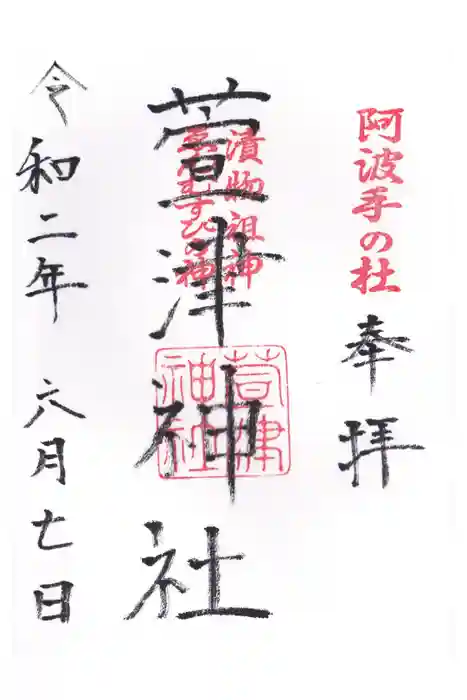 阿波手の杜
奉拝
漬物祖神
むすびの神
萱津神社
萱津神社
令和二年 六月七日